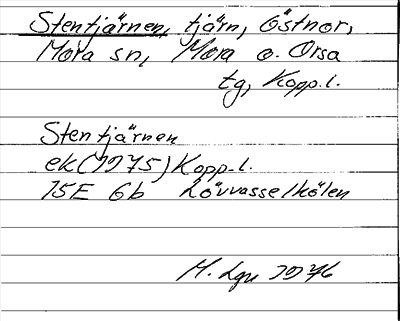 Stentjärnen, tjärn, Östnor,
Mora sn, Mora o. Orsa
tg, Kopp.l.
Stentjärnen
ek (1975) Kopp.l.
15E 6b Lövvasselkölen
M. Lgn 1976